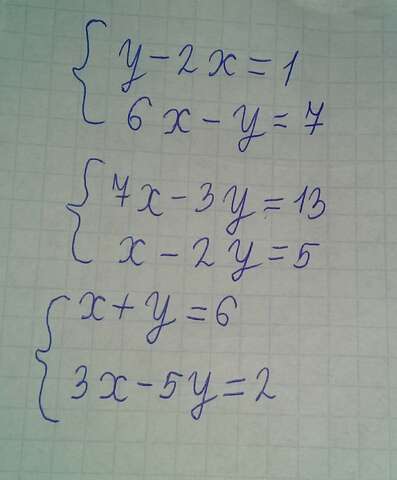 y-2x=1
6x-y=7
7x-3y=13
x-2y=5
x+y=6
3x-5y=2